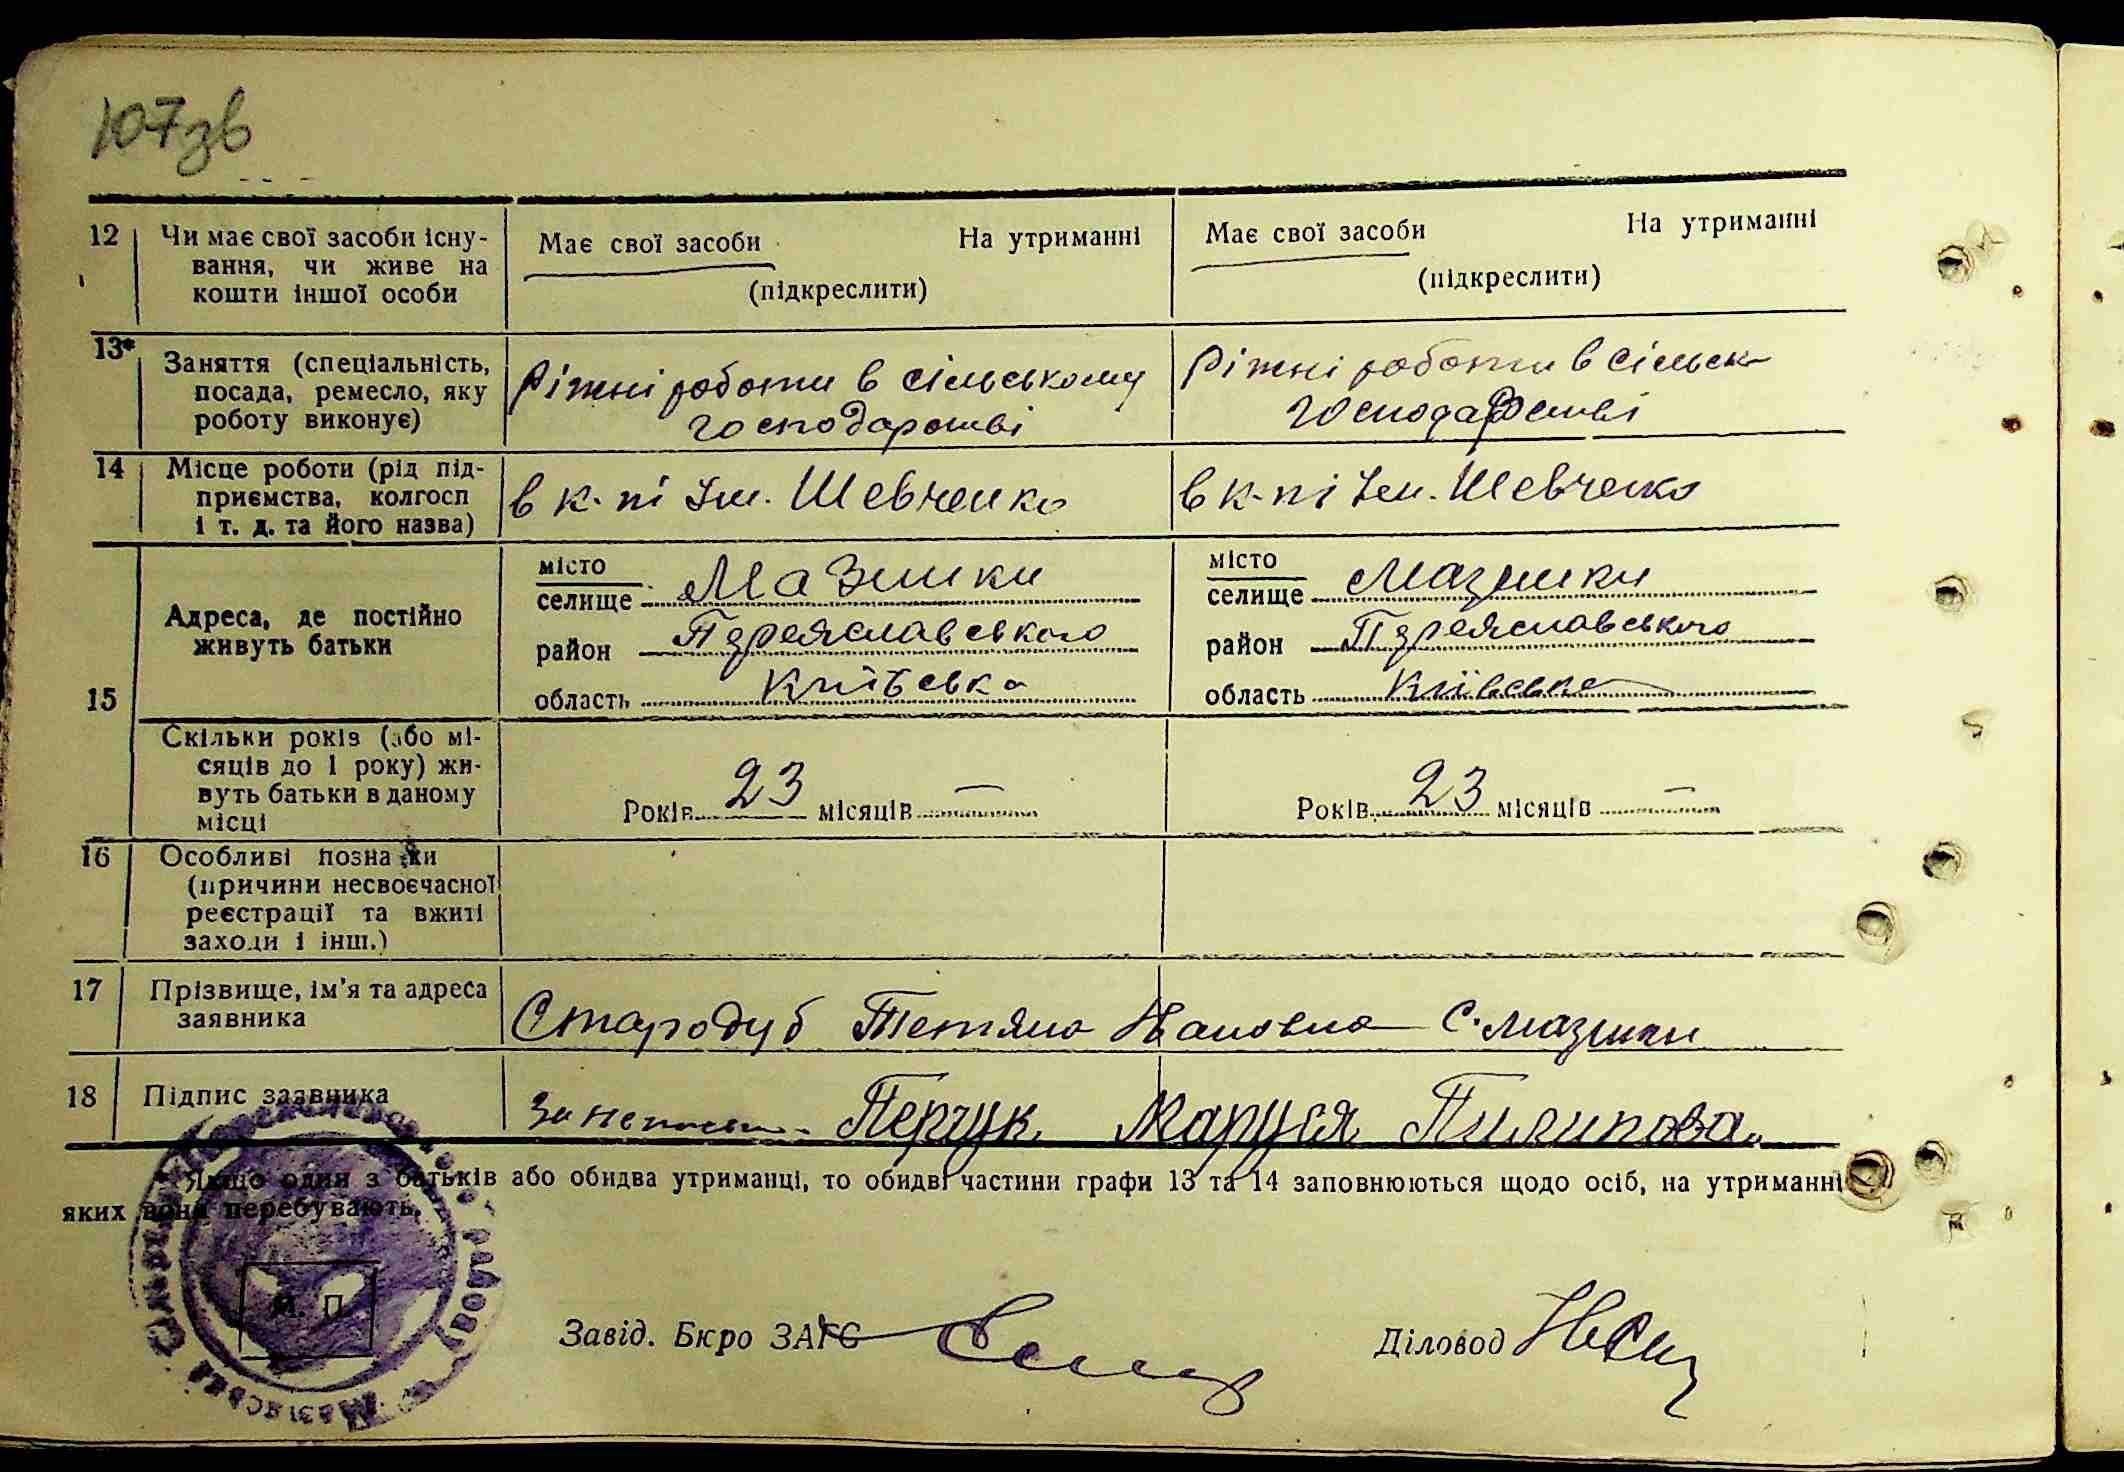 107зв
12 Чи має свої засоби існу-
вання, чи живе на
кошти іншої особи
Має свої засоби На утриманні
(підкреслити)
Має свої засоби На утриманні
(підкреслити)
13* Заняття (спеціальність,
посада, ремесло, яку
роботу виконує)
Ріжні роботи в сільському
господарстві
Ріжні роботи в сільськ
господарстві
14 Місце роботи (рід під-
приємства, колгосп
і т. д. та його назва)
в к-пі Ім. Шевченко
в к-пі Ім. Шевченко
15
Адреса, де постійно
живуть батьки
місто
селище Мазинки
район Переяславського
область Київська
місто
селище Мазинки
район Переяславського
область Київська
Скільки років (або мі-
сяців до 1 року) жи-
вуть батьки в даному
місці
Років 23 місяців —
Років 23 місяців —
16 Особливі познаки
(причини несвоєчасної
реєстрації та вжиті
заходи і інш.)
17 Прізвище, ім'я та адреса
заявника
Стародуб Тетяна Івановна с. Мазинки
18 Підпис заявника
За неписьм. Перчук Маруся Пилипова.
Якщо один з батьків або обидва утриманці, то обидві частини графи 13 та 14 заповнюються щодо осіб, на утриманні
яких вони перебувають.
М. П.
Завід. Бюро ЗАГС
Діловод